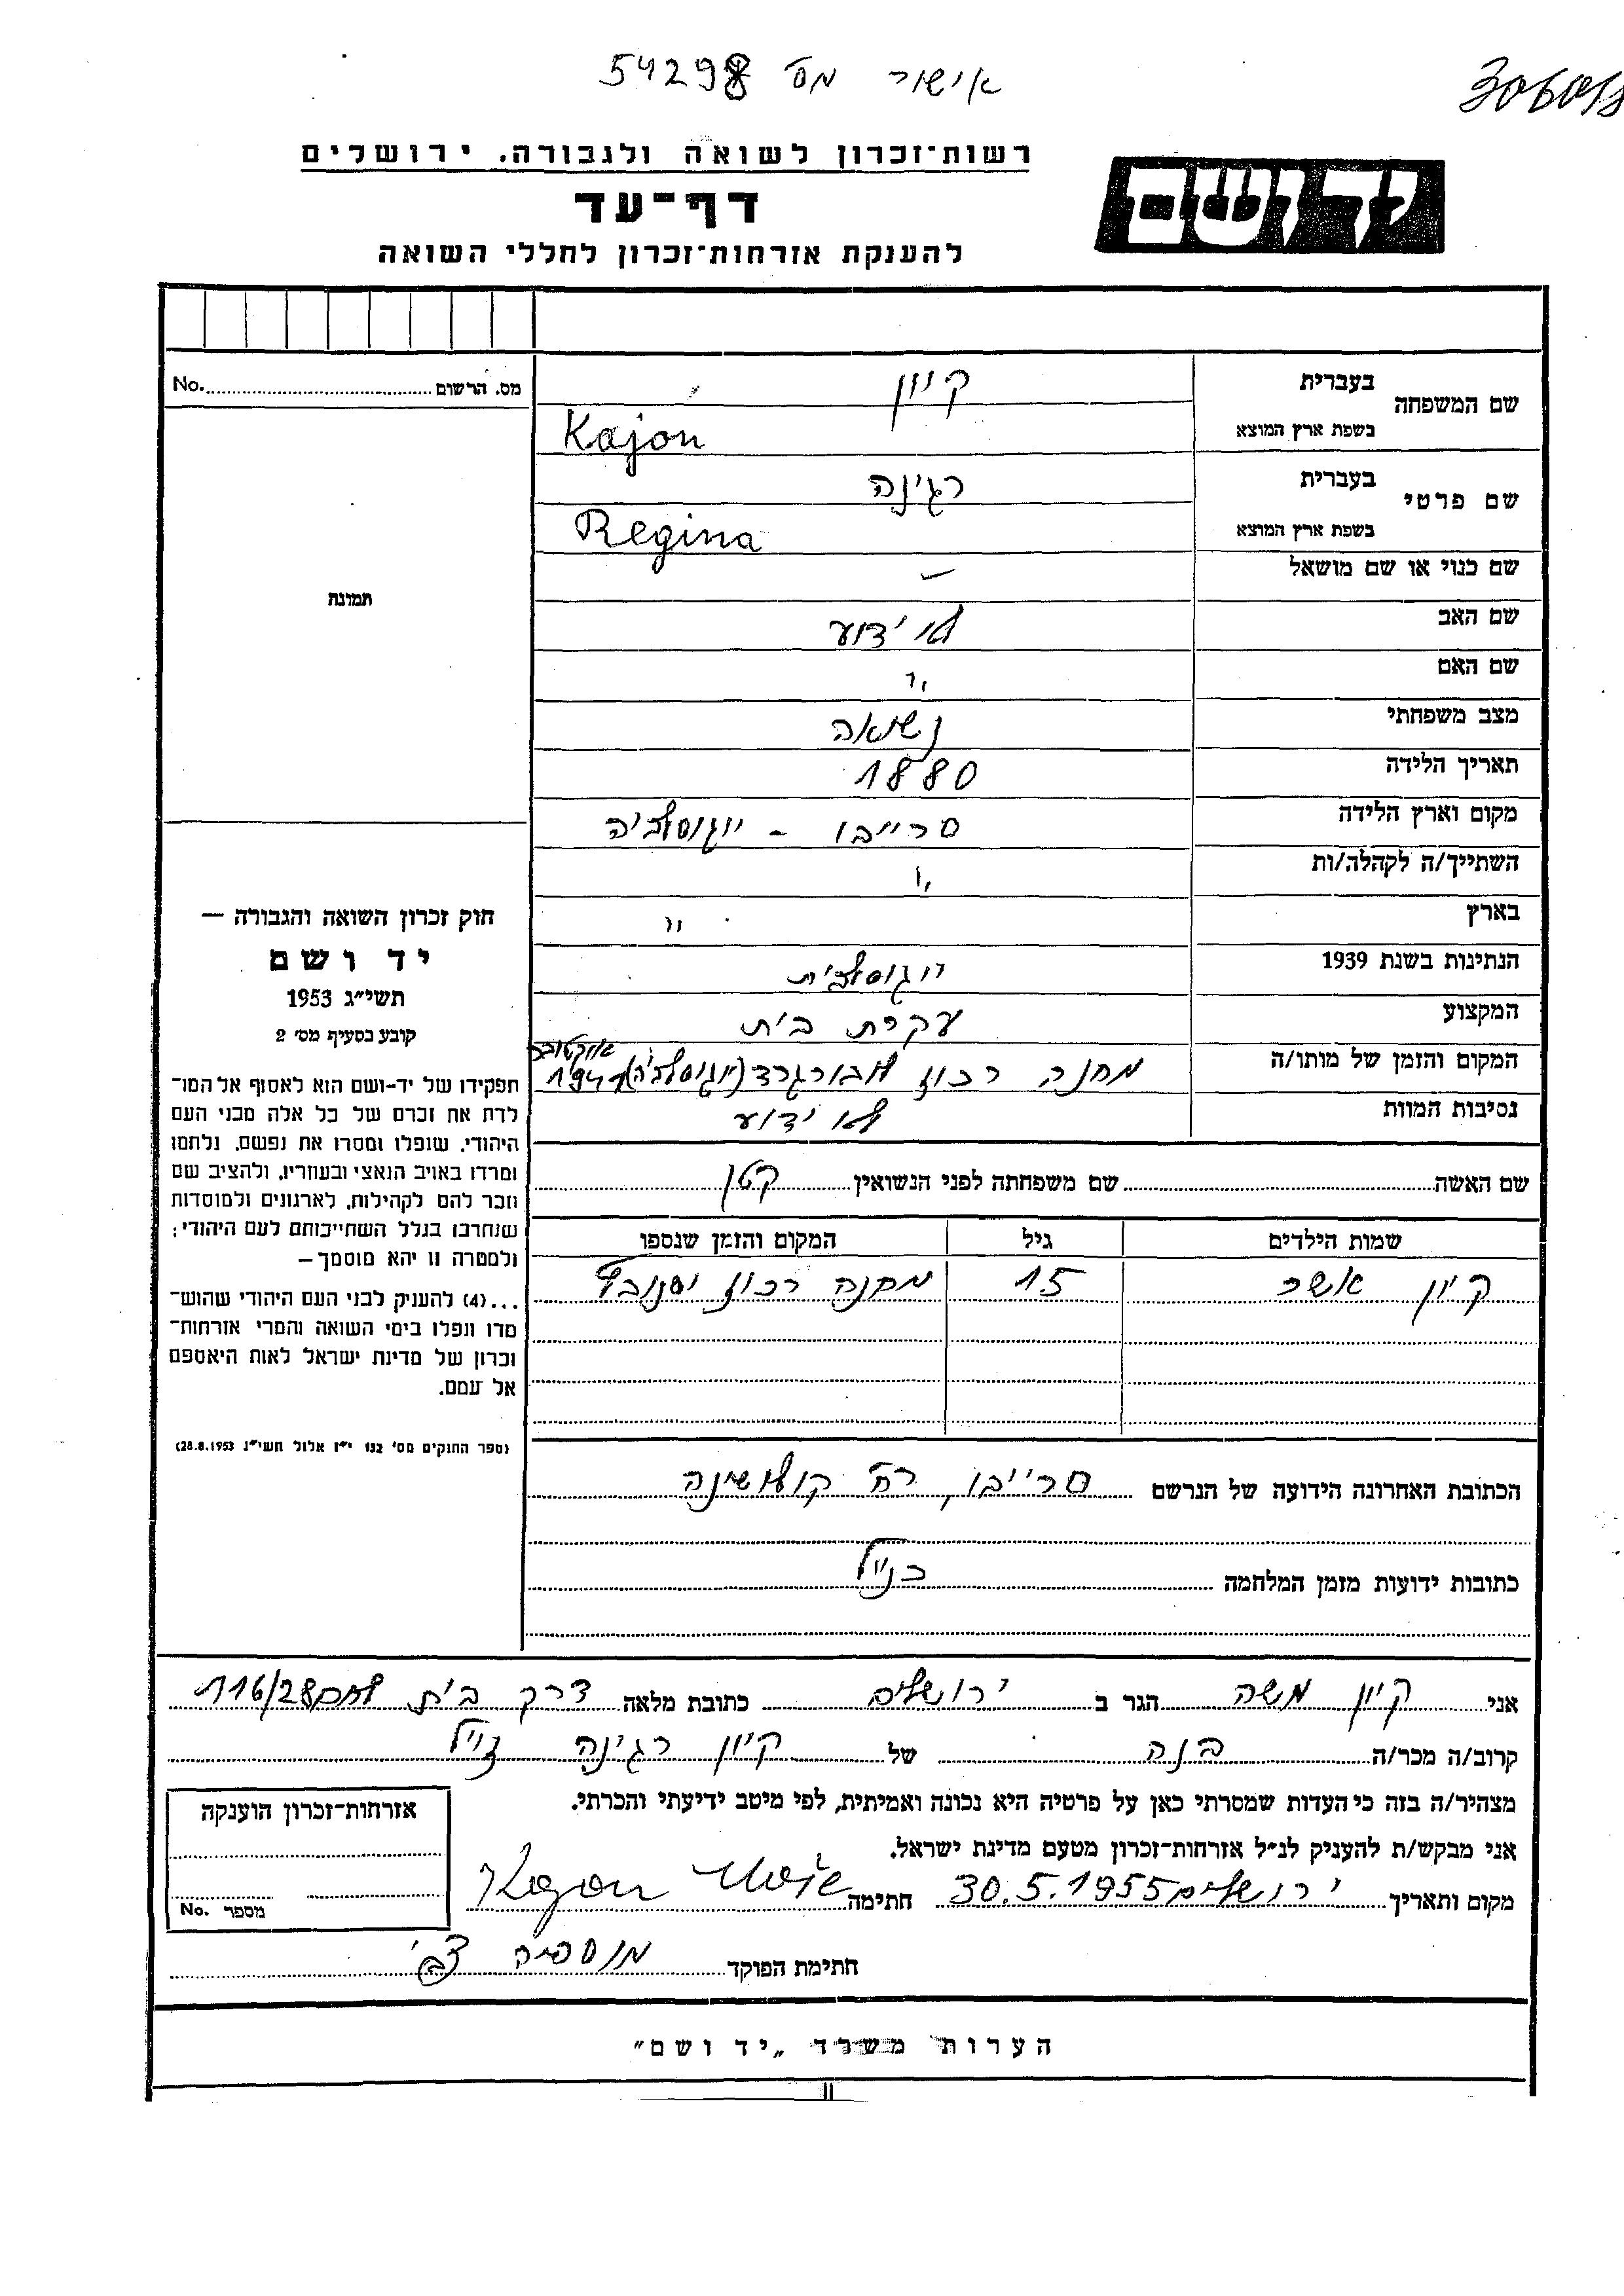 אישור מס' 54298
רשות־זכרון לשואה ולגבורה, ירושלים
יד ושם
דף־עד
להענקת אזרחות־זכרון לחללי השואה
מס. הרשום No.
שם המשפחה
בעברית קיון
בשפת ארץ המוצא Kajon
שם פרטי
בעברית רגינה
בשפת ארץ המוצא Regina
שם כנוי או שם מושאל –
תמונה
שם האב לא ידוע
שם האם "
מצב משפחתי נשואה
תאריך הלידה 1880
מקום וארץ הלידה סרייבו - יוגוסלביה
השתייך/ה לקהלה/ות "
בארץ "
הנתינות בשנת 1939 יוגוסלבית
המקצוע עקרת בית
המקום והזמן של מותו/ה מחנה רכוז לבורגרד (יוגוסלביה) אוקטובר 1941
נסיבות המוות לא ידוע
חוק זכרון השואה והגבורה —
יד ושם
תשי"ג 1953
קובע בסעיף מס' 2
תפקידו של יד-ושם הוא לאסוף אל המו־
לדת את זכרם של כל אלה מבני העם
היהודי, שנפלו ומסרו את נפשם, נלחמו
ומרדו באויב הנאצי ובעוזריו, ולהציב שם
וזכר להם לקהילות, לארגונים ולמוסדות
שנחרבו בגלל השתייכותם לעם היהודי;
ולמטרה זו יהא מוסמך —
...(4) להעניק לבני העם היהודי שהוש־
מדו ונפלו בימי השואה והמרי אזרחות־
זכרון של מדינת ישראל לאות היאספם
אל עמם.
(ספר החוקים מס' 132 י"ז אלול תשי"ג 28.8.1953)
שם האשה שם משפחתה לפני הנשואין קטן
שמות הילדים גיל המקום והזמן שנספו
קיון אשר 15 מחנה רכוז יסנובץ
הכתובת האחרונה הידועה של הנרשם סרייבו, רח' קולושינה
כתובות ידועות מזמן המלחמה כנ"ל
אני קיון משה הגר ב ירושלים כתובת מלאה דרך בית לחם 116/28
קרוב/ה מכר/ה בנה של קיון רגינה ז"ל
מצהיר/ה בזה כי העדות שמסרתי כאן על פרטיה היא נכונה ואמיתית, לפי מיטב ידיעתי והכרתי.
אני מבקש/ת להעניק לנ"ל אזרחות־זכרון מטעם מדינת ישראל.
מקום ותאריך ירושלים 30.5.1955 חתימה Kajon
חתימת הפוקד מוספיה צבי
אזרחות־זכרון הוענקה
מספר No.
הערות משרד „יד ושם"